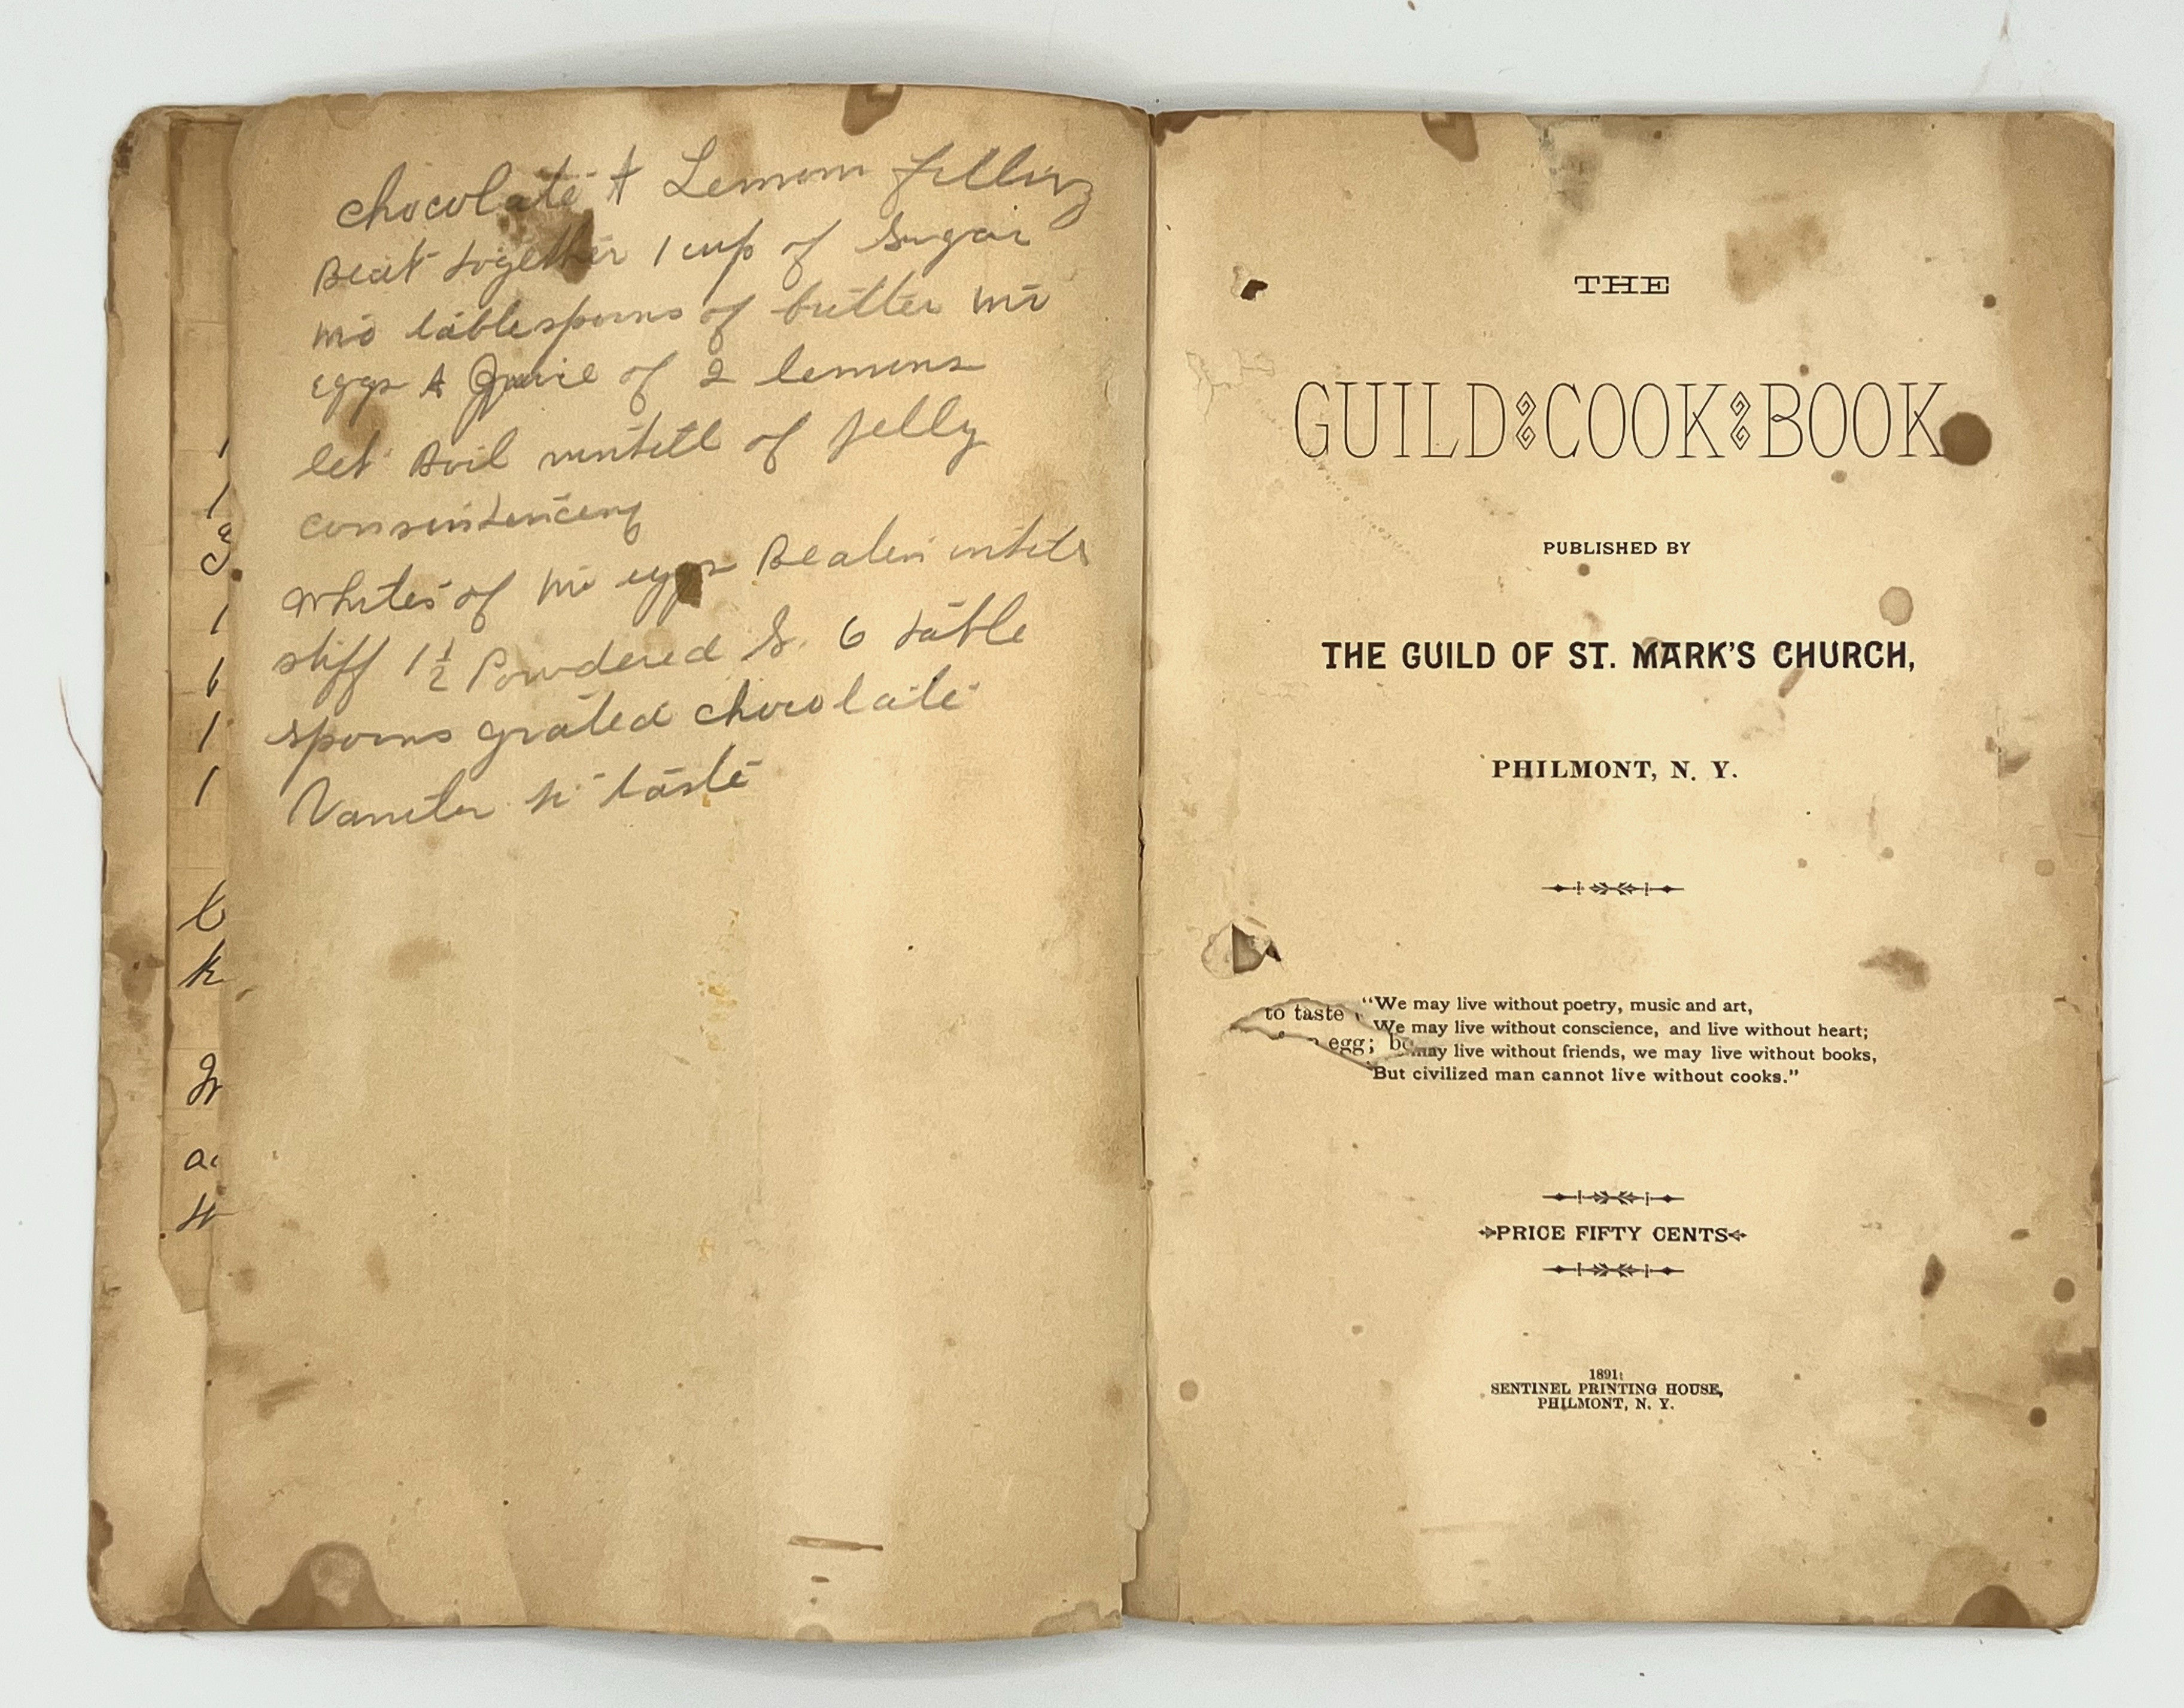 chocolate & Lemon filling
Beat together 1 cup of Sugar
tablespoons of butter
eggs & Juice of 2 lemons
let Boil untill of jelly
consistencey
whites of eggs Beaten untill
stiff 1 1/2 Powdered S. 6 table
spoons grated chocolate
to taste
1
1
3
1
1
1
1
k
THE
GUILD COOK BOOK
PUBLISHED BY
THE GUILD OF ST. MARK'S CHURCH,
PHILMONT, N. Y.
"We may live without poetry, music and art,
We may live without conscience, and live without heart;
may live without friends, we may live without books,
But civilized man cannot live without cooks."
to taste
egg;
PRICE FIFTY CENTS
1891:
SENTINEL PRINTING HOUSE,
PHILMONT, N. Y.